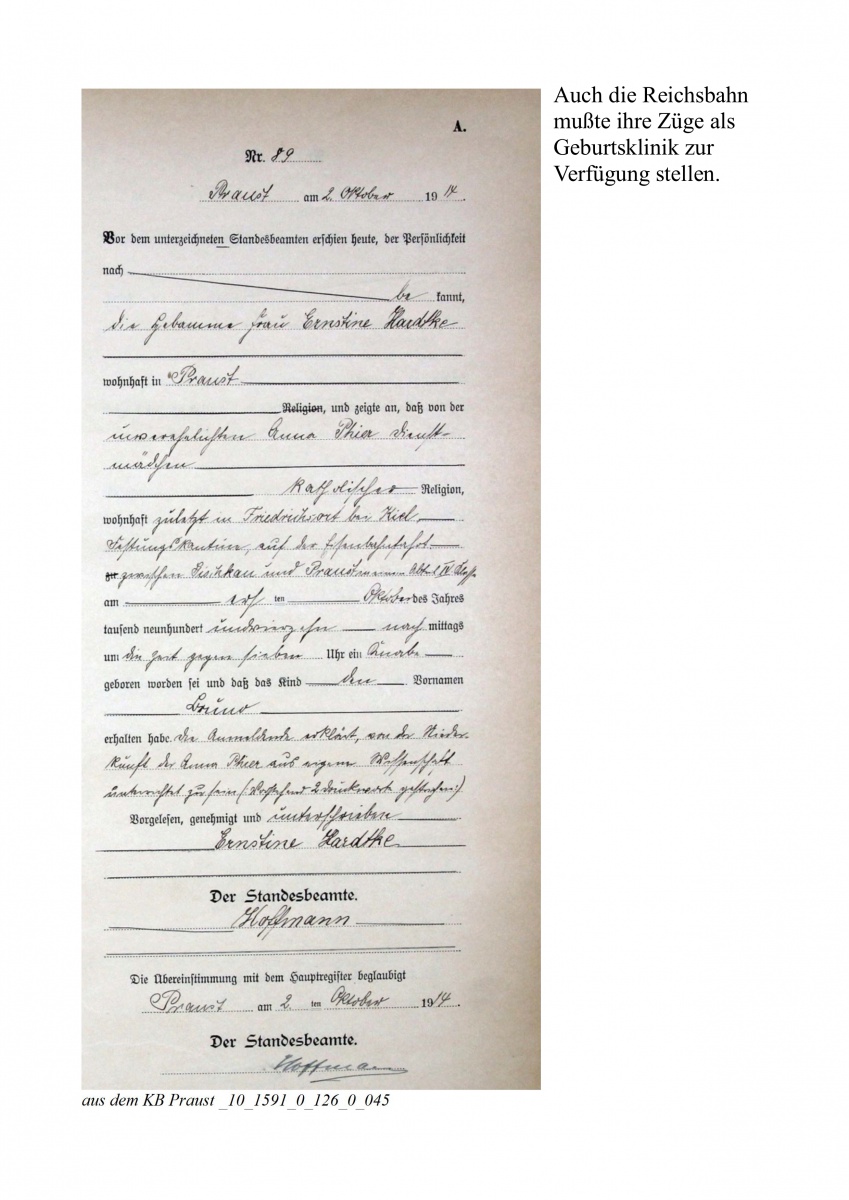 Auch die Reichsbahn
mußte ihre Züge als
Geburtsklinik zur
Verfügung stellen.
A.
Nr. 89
Praust am 2. Oktober 1914.
Vor dem unterzeichneten Standesbeamten erschien heute, der Persönlichkeit
nach
be kannt,
die Hebamme Frau Ernstine Hardtke
wohnhaft in Praust
Religion, und zeigte an, daß von der
unverehelichten Anna Phier Dienst-
mädchen
katholischer Religion,
wohnhaft zuletzt in Friedrichsort bei Kiel
Festungskantine, auf der Eisenbahnfahrt
zu zwischen und Praust
am ten Oktober des Jahres
tausend neunhundert undvierzehn nach mittags
um die Zeit gegen sieben Uhr ein Knabe
geboren worden sei und daß das Kind den Vornamen
Bruno
erhalten habe. Die Anmeldende erklärt, von der Nieder-
kunft der Anna Phier aus eigener Wissenschaft
unterrichtet zu sein (Vorstehend 2 Druckworte gestrichen)
Vorgelesen, genehmigt und unterschrieben
Ernstine Hardtke
Der Standesbeamte.
Hoffmann
Die Übereinstimmung mit dem Hauptregister beglaubigt
Praust am 2. ten Oktober 1914.
Der Standesbeamte.
Hoffmann
aus dem KB Praust _10_1591_0_126_0_045